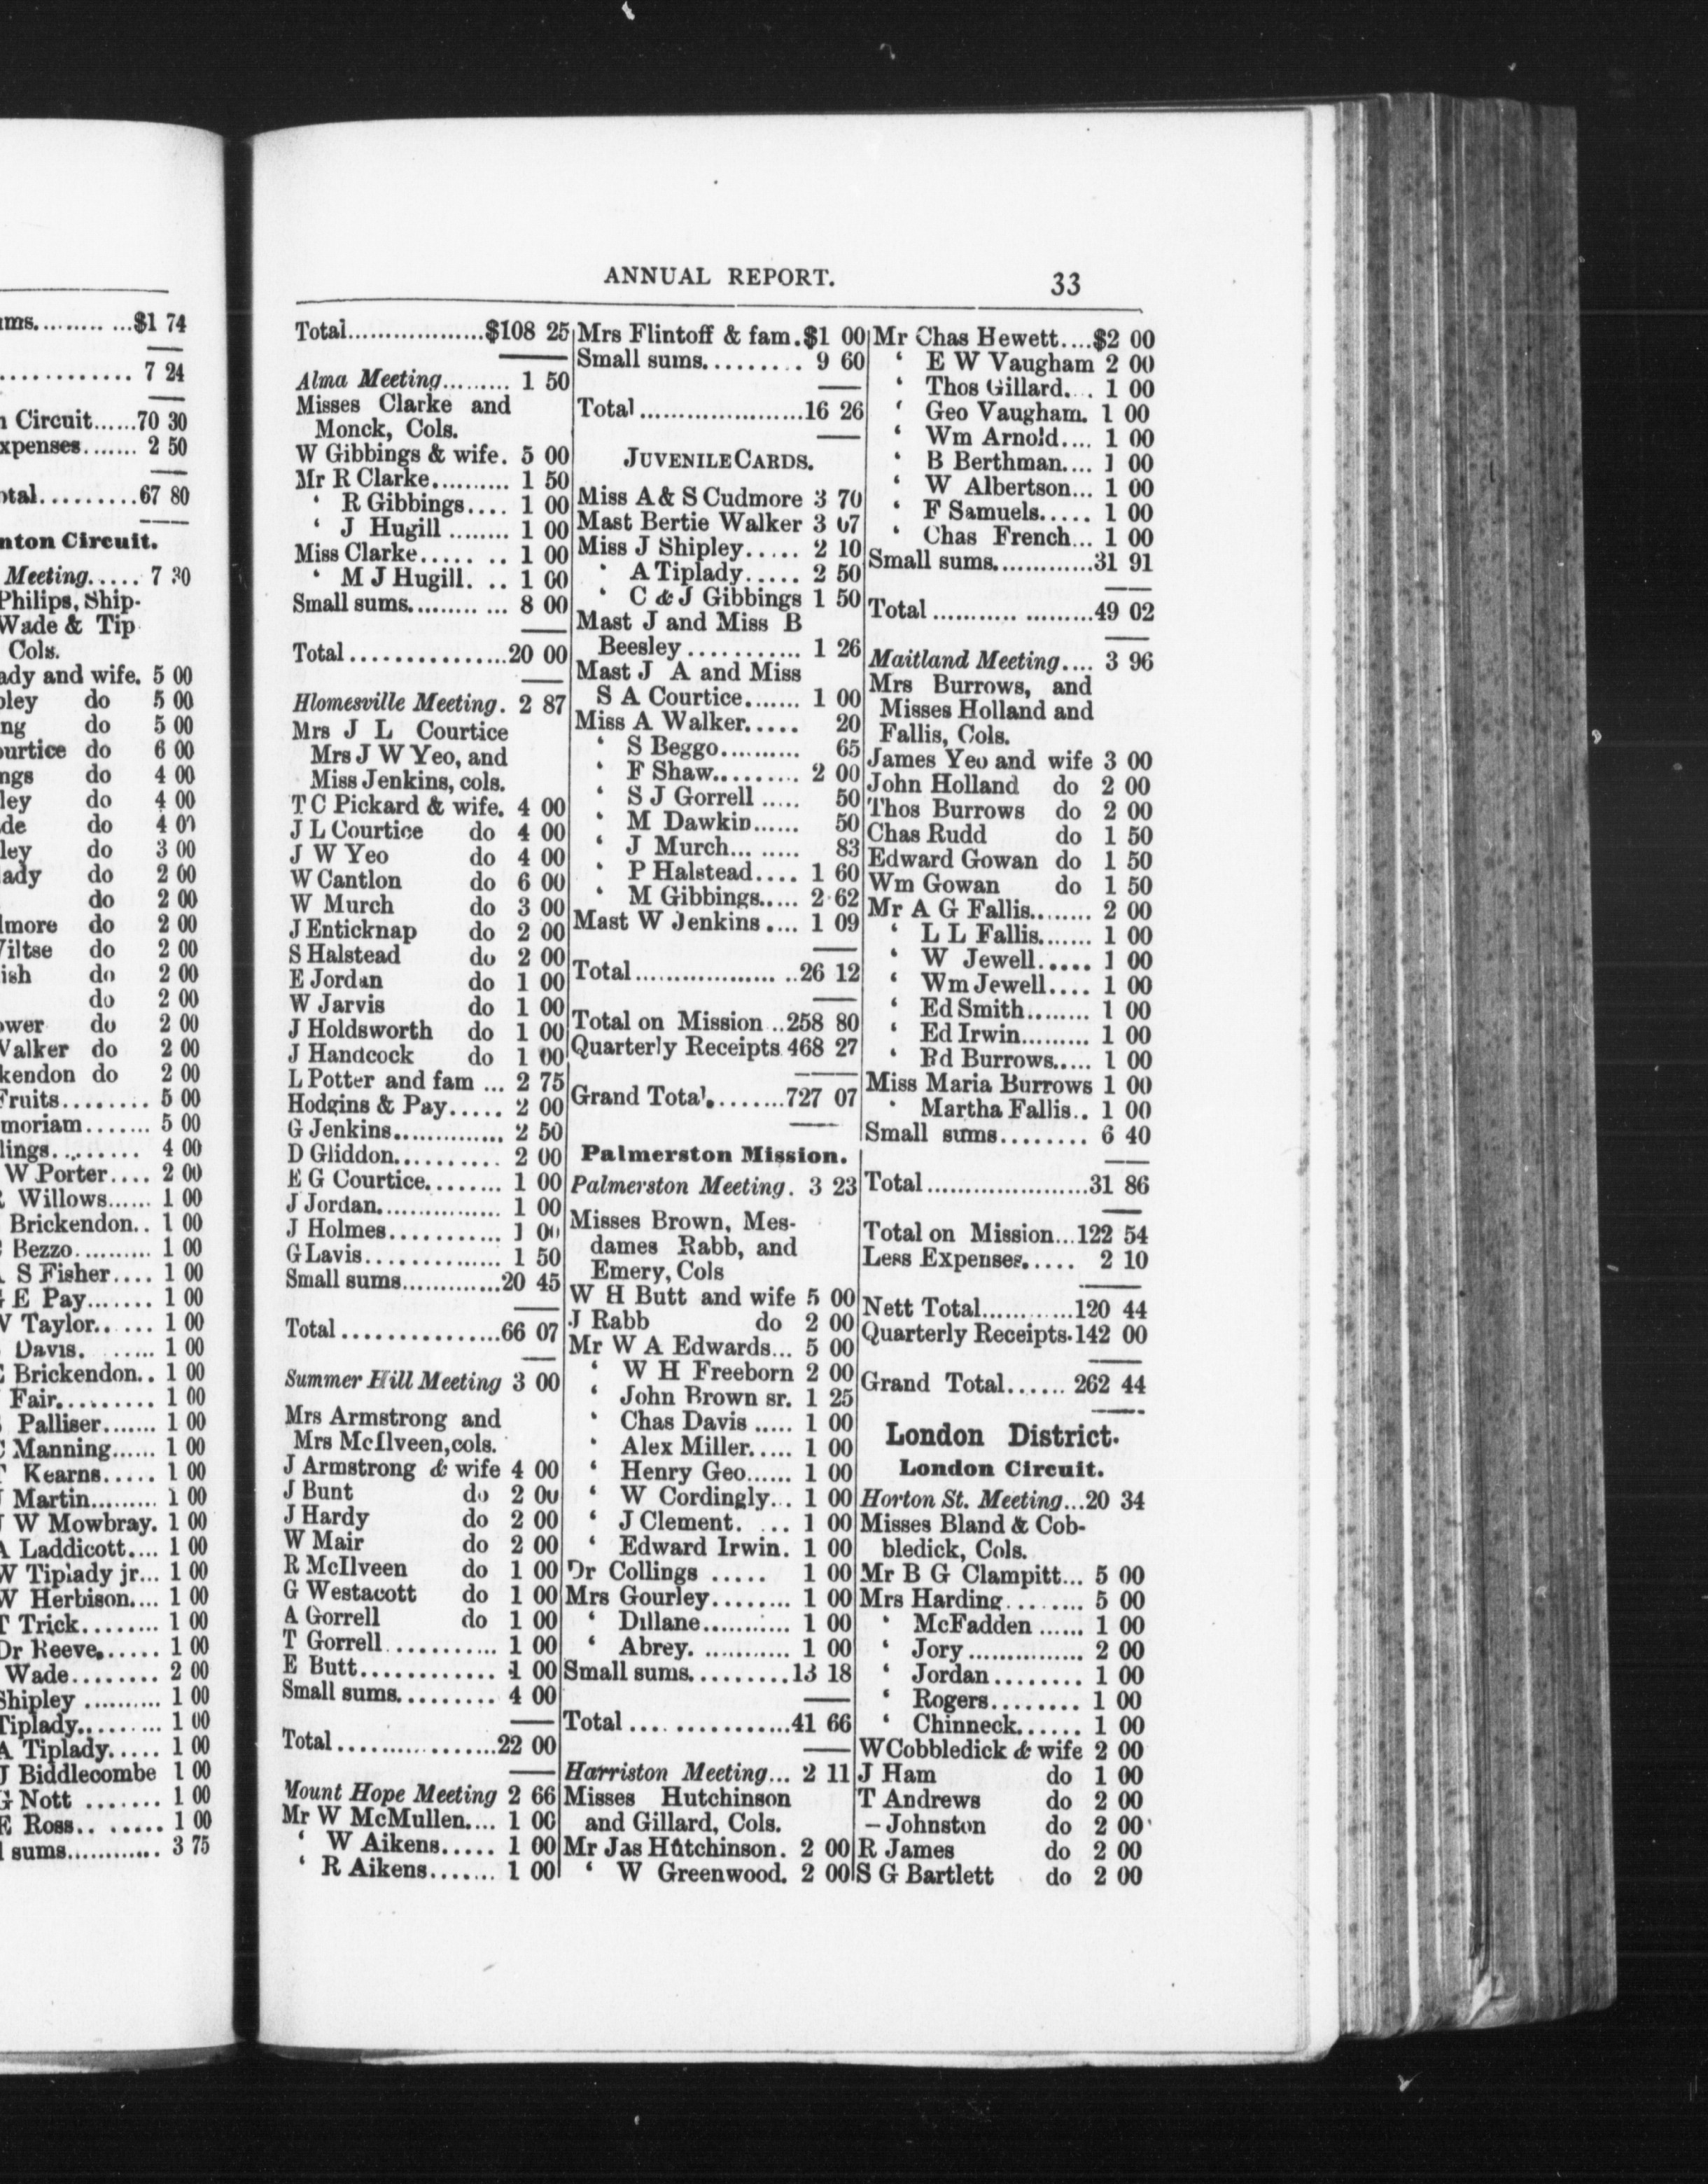 ms............$1 74
............. 7 24
Circuit......70 30
xpenses....... 2 50
tal.........67 80
nton Circuit.
Meeting..... 7 30
Philips, Ship-
Wade & Tip
Cols.
ady and wife. 5 00
ley do 5 00
ng do 5 00
ourtice do 6 00
ngs do 4 00
ley do 4 00
de do 4 00
ley do 3 00
ady do 2 00
do 2 00
lmore do 2 00
iltse do 2 00
ish do 2 00
do 2 00
ower do 2 00
alker do 2 00
kendon do 2 00
Fruits........ 5 00
moriam....... 5 00
lings......... 4 00
W Porter.... 2 00
Willows...... 1 00
Brickendon.. 1 00
Bezzo.......... 1 00
S Fisher.... 1 00
E Pay....... 1 00
Taylor...... 1 00
Davis. ..... 1 00
Brickendon.. 1 00
Fair.......... 1 00
Palliser....... 1 00
Manning...... 1 00
Kearns..... 1 00
Martin......... 1 00
W Mowbray. 1 00
A Laddicott.... 1 00
W Tiplady jr... 1 00
W Herbison.... 1 00
T Trick......... 1 00
Dr Reeve...... 1 00
Wade......... 2 00
Shipley .......... 1 00
Tiplady.......... 1 00
A Tiplady..... 1 00
J Biddlecombe 1 00
G Nott ....... 1 00
E Ross.. ...... 1 00
sums............ 3 75
ANNUAL REPORT. 33
Total..................$108 25
Alma Meeting......... 1 50
Misses Clarke and
Monck, Cols.
W Gibbings & wife. 5 00
Mr R Clarke.......... 1 50
‘ R Gibbings.... 1 00
‘ J Hugill ........ 1 00
Miss Clarke...... .. 1 00
‘ M J Hugill. .. 1 00
Small sums......... ... 8 00
Total...............20 00
Hlomesville Meeting. 2 87
Mrs J L Courtice
Mrs J W Yeo, and
Miss Jenkins, cols.
T C Pickard & wife. 4 00
J L Courtice do 4 00
J W Yeo do 4 00
W Cantlon do 6 00
W Murch do 3 00
J Enticknap do 2 00
S Halstead do 2 00
E Jordan do 1 00
W Jarvis do 1 00
J Holdsworth do 1 00
J Handcock do 1 00
L Potter and fam ... 2 75
Hodgins & Pay..... 2 00
G Jenkins............. 2 50
D Gliddon.......... 2 00
E G Courtice........ 1 00
J Jordan............... 1 00
J Holmes........... 1 00
G Lavis.............. 1 50
Small sums............20 45
Total...............66 07
Summer Hill Meeting 3 00
Mrs Armstrong and
Mrs McIlveen, cols.
J Armstrong & wife 4 00
J Bunt do 2 00
J Hardy do 2 00
W Mair do 2 00
R McIlveen do 1 00
G Westacott do 1 00
A Gorrell do 1 00
T Gorrell........... 1 00
E Butt............ 1 00
Small sums......... 4 00
Total...............22 00
Mount Hope Meeting 2 66
Mr W McMullen.... 1 00
‘ W Aikens..... 1 00
‘ R Aikens....... 1 00
Mrs Flintoff & fam.$1 00
Small sums......... 9 60
Total.....................16 26
JUVENILE CARDS.
Miss A & S Cudmore 3 70
Mast Bertie Walker 3 07
Miss J Shipley..... 2 10
‘ A Tiplady..... 2 50
‘ C & J Gibbings 1 50
Mast J and Miss B
Beesley........... 1 26
Mast J A and Miss
S A Courtice....... 1 00
Miss A Walker..... 20
‘ S Beggo.......... 65
‘ F Shaw......... 2 00
‘ S J Gorrell ..... 50
‘ M Dawkin...... 50
‘ J Murch... ..... 83
‘ P Halstead.... 1 60
‘ M Gibbings..... 2 62
Mast W Jenkins.... 1 09
Total.................. ..26 12
Total on Mission ..258 80
Quarterly Receipts 468 27
Grand Total.........727 07
Palmerston Mission.
Palmerston Meeting. 3 23
Misses Brown, Mes-
dames Rabb, and
Emery, Cols
W H Butt and wife 5 00
J Rabb do 2 00
Mr W A Edwards... 5 00
‘ W H Freeborn 2 00
‘ John Brown sr. 1 25
‘ Chas Davis ..... 1 00
‘ Alex Miller..... 1 00
‘ Henry Geo...... 1 00
‘ W Cordingly... 1 00
‘ J Clement. ... 1 00
‘ Edward Irwin. 1 00
Dr Collings ..... 1 00
Mrs Gourley........ 1 00
‘ Dillane........... 1 00
‘ Abrey. ........... 1 00
Small sums..........13 18
Total ..................41 66
Harriston Meeting... 2 11
Misses Hutchinson
and Gillard, Cols.
Mr Jas Hutchinson. 2 00
‘ W Greenwood. 2 00
Mr Chas Hewett....$2 00
‘ E W Vaugham 2 00
‘ Thos Gillard... 1 00
‘ Geo Vaugham. 1 00
‘ Wm Arnold.... 1 00
‘ B Berthman.... 1 00
‘ W Albertson... 1 00
‘ F Samuels..... 1 00
‘ Chas French... 1 00
Small sums............31 91
Total ........... .........49 02
Maitland Meeting.... 3 96
Mrs Burrows, and
Misses Holland and
Fallis, Cols.
James Yeo and wife 3 00
John Holland do 2 00
Thos Burrows do 2 00
Chas Rudd do 1 50
Edward Gowan do 1 50
Wm Gowan do 1 50
Mr A G Fallis........ 2 00
‘ L L Fallis....... 1 00
‘ W Jewell...... 1 00
‘ Wm Jewell.... 1 00
‘ Ed Smith........ 1 00
‘ Ed Irwin......... 1 00
‘ Ed Burrows..... 1 00
Miss Maria Burrows 1 00
‘ Martha Fallis.. 1 00
Small sums........ 6 40
Total......................31 86
Total on Mission...122 54
Less Expenses..... 2 10
Nett Total...........120 44
Quarterly Receipts.142 00
Grand Total...... 262 44
London District.
London Circuit.
Horton St. Meeting...20 34
Misses Bland & Cob-
bledick, Cols.
Mr B G Clampitt... 5 00
Mrs Harding......... 5 00
‘ McFadden ...... 1 00
‘ Jory............... 2 00
‘ Jordan......... 1 00
‘ Rogers........ 1 00
‘ Chinneck...... 1 00
W Cobbledick & wife 2 00
J Ham do 1 00
T Andrews do 2 00
– Johnston do 2 00
R James do 2 00
S G Bartlett do 2 00